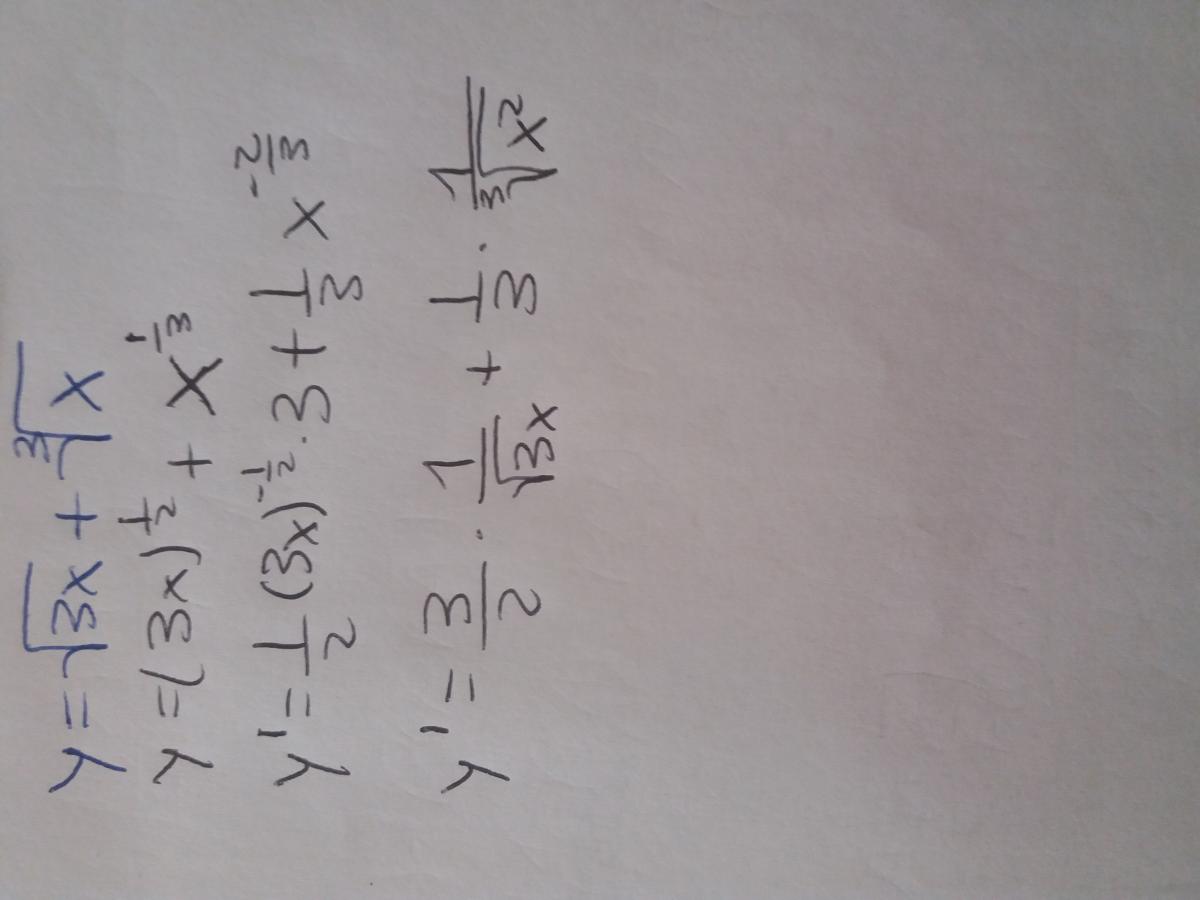 y = √3x + ∛x
y = (3x)^(1/2) + x^(1/3)
y' = 1/2 (3x)^(-1/2) · 3 + 1/3 x^(-2/3)
y' = 3/2 · 1/√3x + 1/3 · 1/∛x²